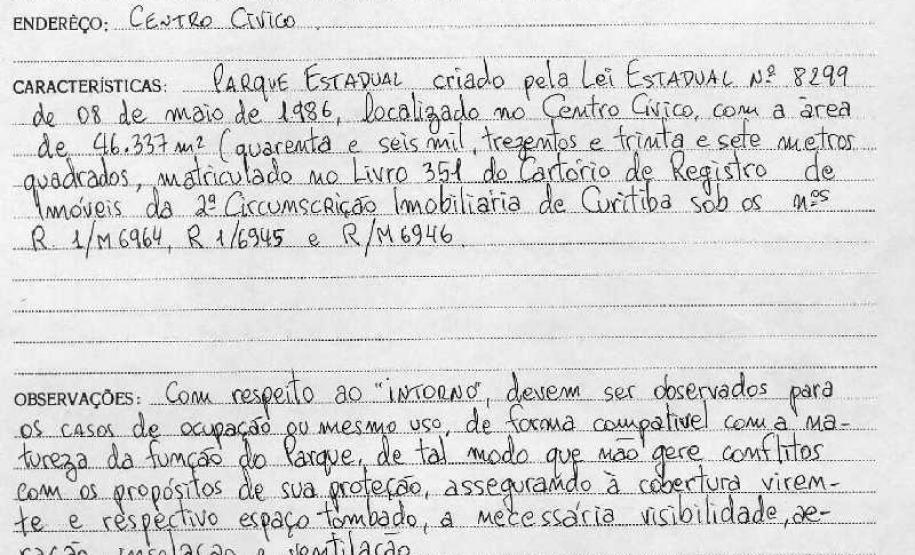 ENDERÊÇO: CENTRO CÍVICO
CARACTERÍSTICAS: PARQUE ESTADUAL criado pela Lei ESTADUAL Nº 8299
de 08 de maio de 1986, localizado no Centro Cívico, com a área
de 46.337 m² (quarenta e seis mil, trezentos e trinta e sete metros
quadrados, matriculado no Livro 351 do Cartório de Registro de
Imóveis da 2ª Circunscrição Imobiliária de Curitiba sob os nºs
R 1/M6964, R 1/6945 e R/M6946.
OBSERVAÇÕES: Com respeito ao "INTORNO", devem ser observados para
os casos de ocupação ou mesmo uso, de forma compatível com a na-
tureza da função do Parque, de tal modo que não gere conflitos
com os propósitos de sua proteção, assegurando à cobertura viren-
te e respectivo espaço tombado, a necessária visibilidade, ae-
ração, insolação e ventilação